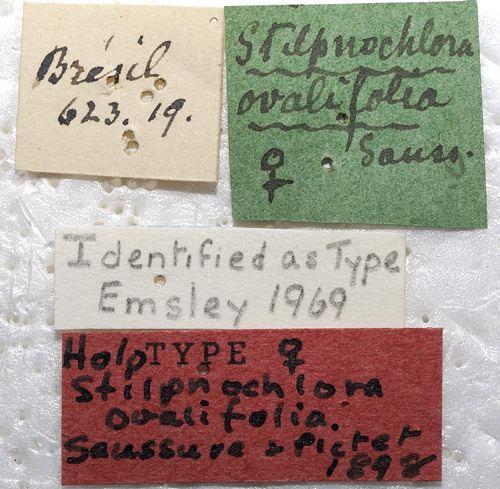 Brésil
623.19.
Stilpnochlora
ovalifolia
♀ Sauss.
Identified as Type
Emsley 1969
HoloTYPE ♀
Stilpnochlora
ovalifolia.
Saussure & Pictet
1898